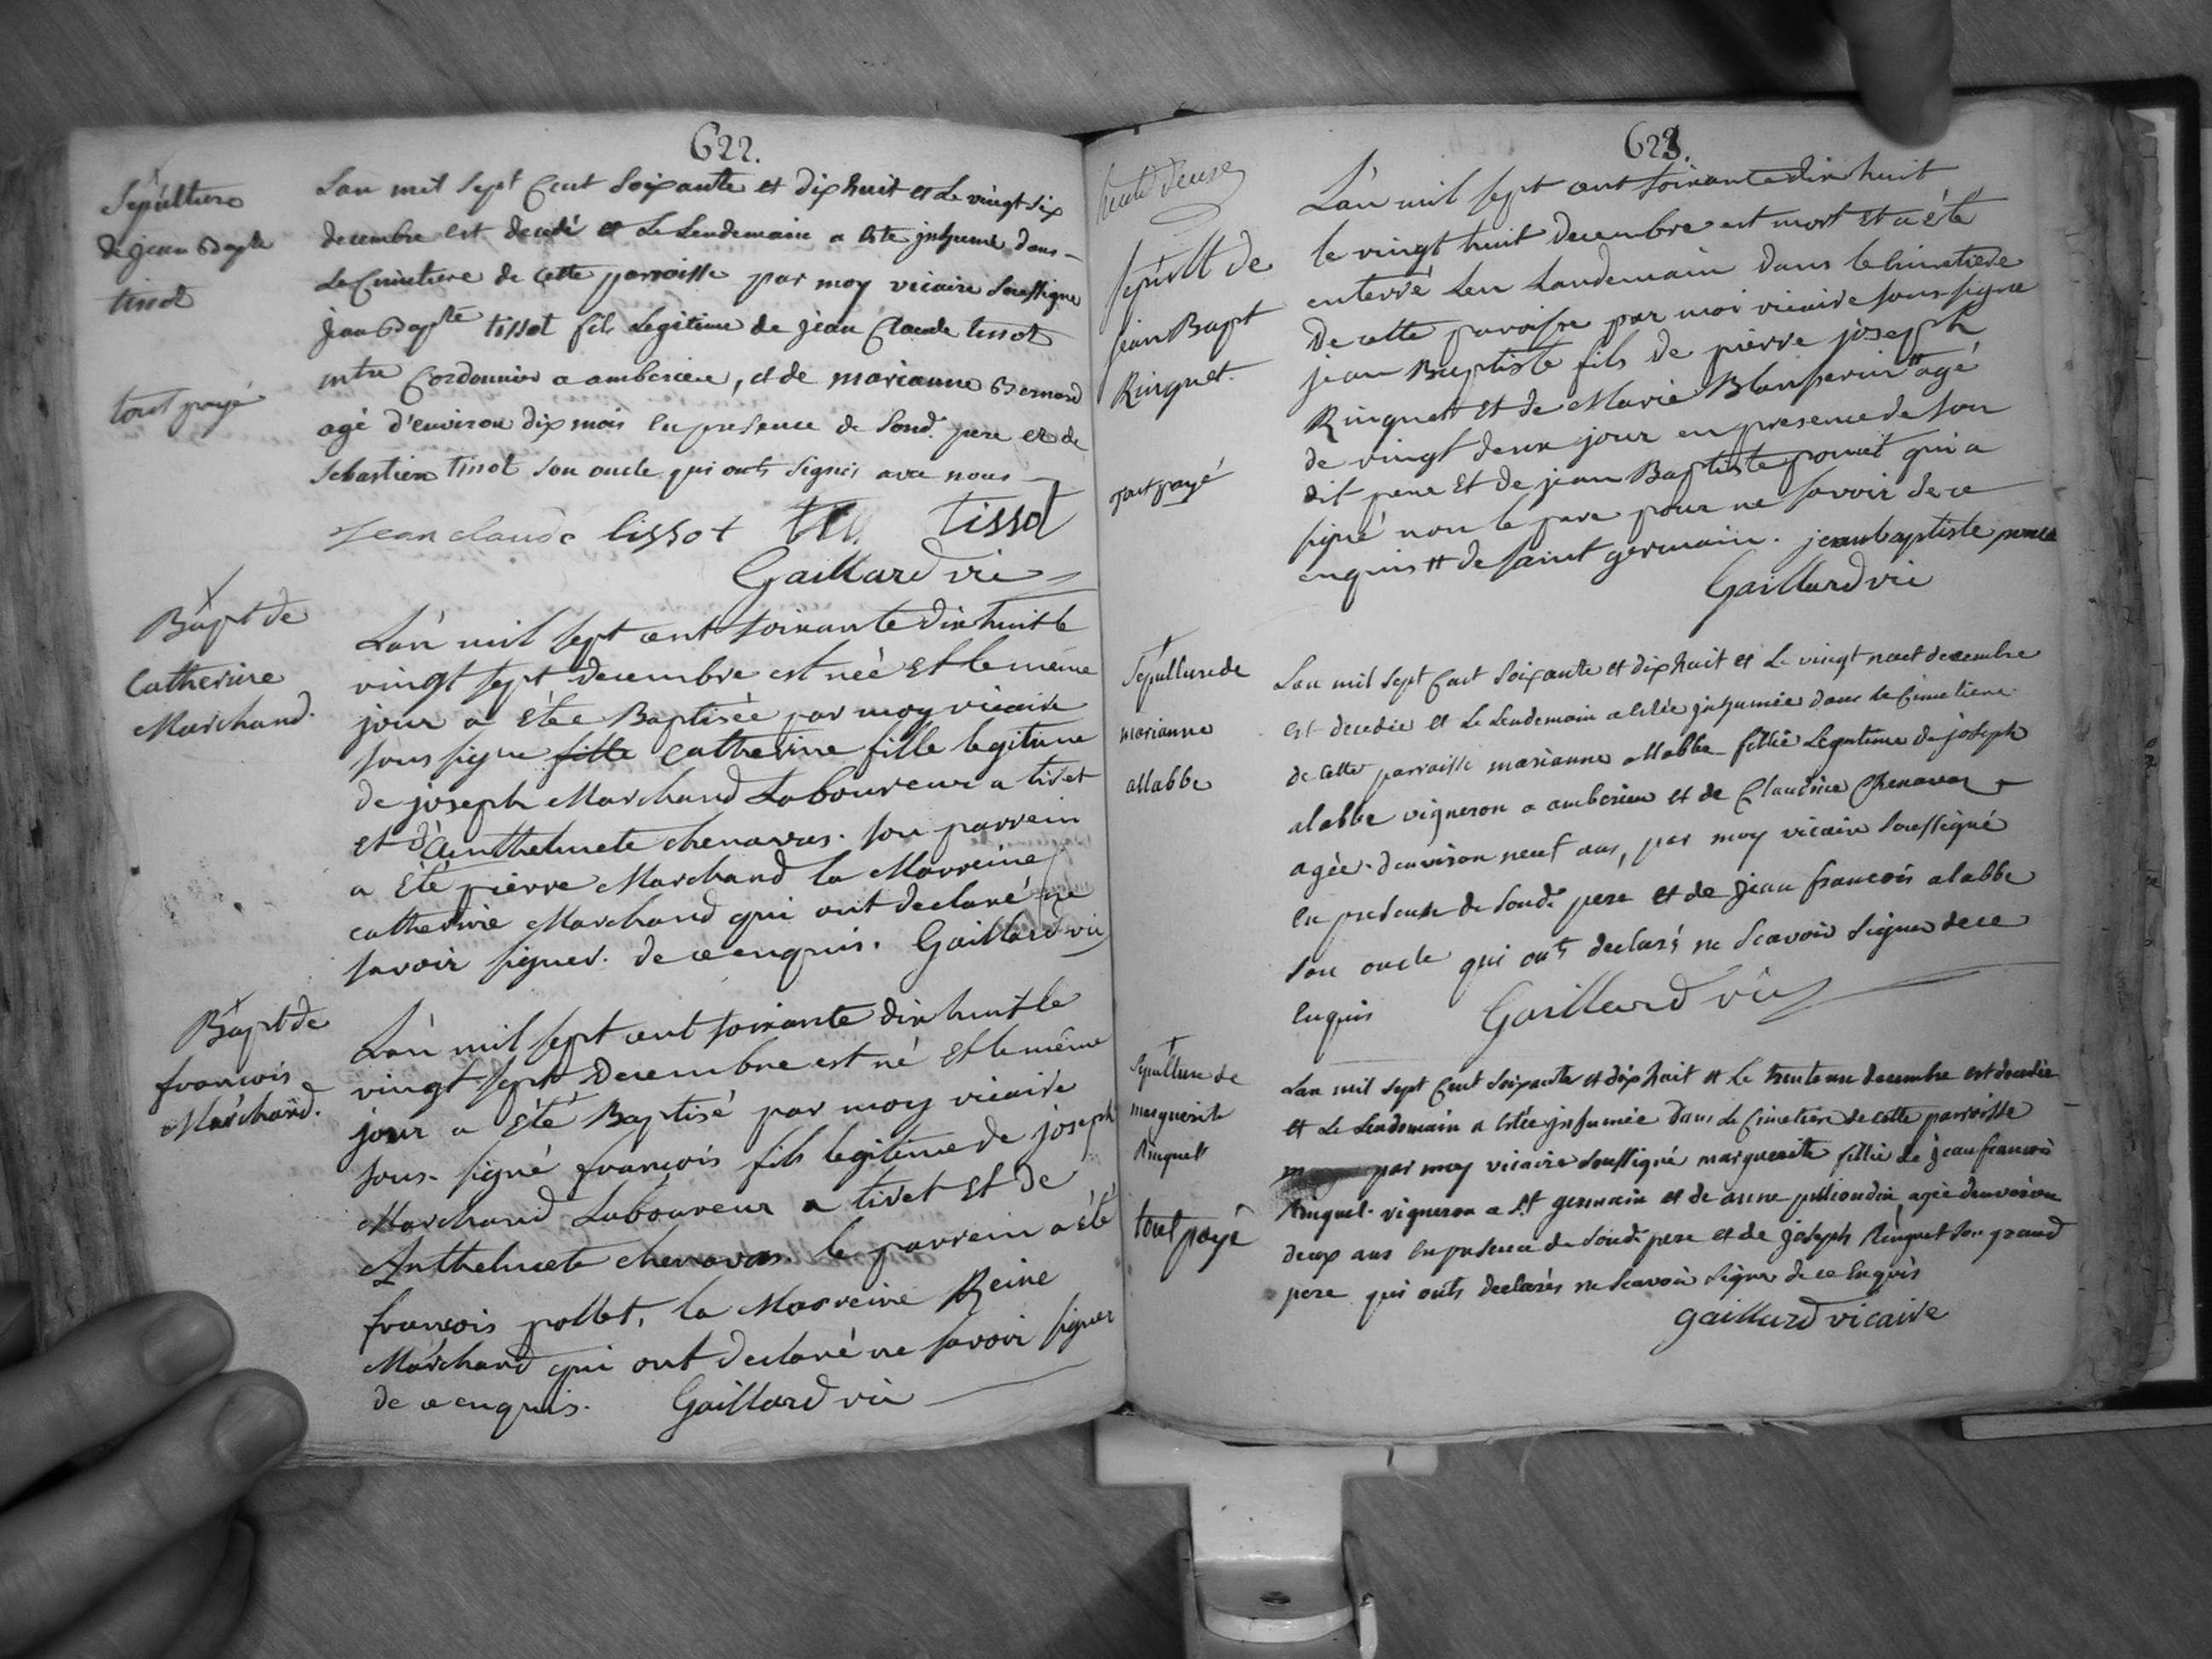 622.
Sepulture
de jean Bapte
tissot
tout payé
Lan mil sept Cent Soixante et dix huit et Le vingt six
decembre est decedé et Le Lendemain a este inhumé dans
Le Cimetiere de cette parroisse par moy vicaire Soussigne
jean Bapte tissot fils Legitime de jean Claude tissot
mtre Cordonnier a amberieu, et de marianne Bernard
agé d'environ dix mois En presence de Sond. pere et de
Sebastien tissot son oncle qui onts signés avec nous
Jean claude tissot tissot
Gaillard vic
Bapt de
Catherine
Marchand.
L'an mil sept cent soixante dix huit le
vingt sept decembre est née et le meme
jour a étée Baptisée par moy vicaire
sous signe fille Catherine fille legitime
de joseph Marchand Laboureur a tiret
et d'Anthelmete chenavas. son parrein
a été pierre Marchand la Marreine
catherine Marchand qui ont declaré ne
savoir signer. de ce enquis. Gaillard vic
Bapt de
francois
Marchand.
L'an mil sept cent soixante dix huit le
vingt sept Decembre est né et le même
jour a été Baptisé par moy vicaire
sous-signé francois fils legitime de joseph
Marchand Laboureur a tiret et de
Anthelmete chenavas. le parrein a été
francois pollet, la Marreine Reine
Marchand qui ont declaré ne savoir signer
de ce enquis. Gaillard vic
623.
sepult de
jean Bapt
Ringuet.
tout payé
L'an mil sept cent soixante dix huit
le vingt huit decembre est mort et a été
enterré Leu Landemain dans le cimetiere
de cette paroisse par moi vicaire sous-signe
jean Baptiste fils de pierre joseph
Ringuet et de Marie Blanserin # agé
de vingt deux jour en presence de son
dit pere et de jean Baptiste ponet qui a
signé non le pere pour ne savoir de ce
enquis # de saint germain. jean baptiste
Gaillard vic
Sepulture de
marianne
allabbe
Lan mil sept Cent Soixante et dix huit et Le vingt neuf decembre
est decedée et Le Lendemain a estée inhumée dans Le Cimetiere
de Cette parroisse marianne allabbe fillie Legitime de joseph
alabbe vigneron a amberieu et de Claudine Chenavaz
agée d'environ neuf ans, par moy vicaire Soussigné
En presence de Sondt pere et de jean francois alabbe
son oncle qui onts declarés ne Scavoir signer de ce
Enquis Gaillard vic
Sepulture de
marguerite
Ringuet
tout payé
Lan mil sept Cent Soixante et dix huit et Le trente un decembre est decedée
et Le Lendemain a estée inhumée dans Le Cimetiere de cette parroisse
par moy vicaire soussigné marguerite fillie de jean francois
Ringuet vigneron a St germain et de anne pillioudin agée d'environ
deux ans En presence de Sondt pere et de joseph Ringuet son grand
pere qui onts declarés ne Scavoir signer de ce Enquis
gaillard vicaire